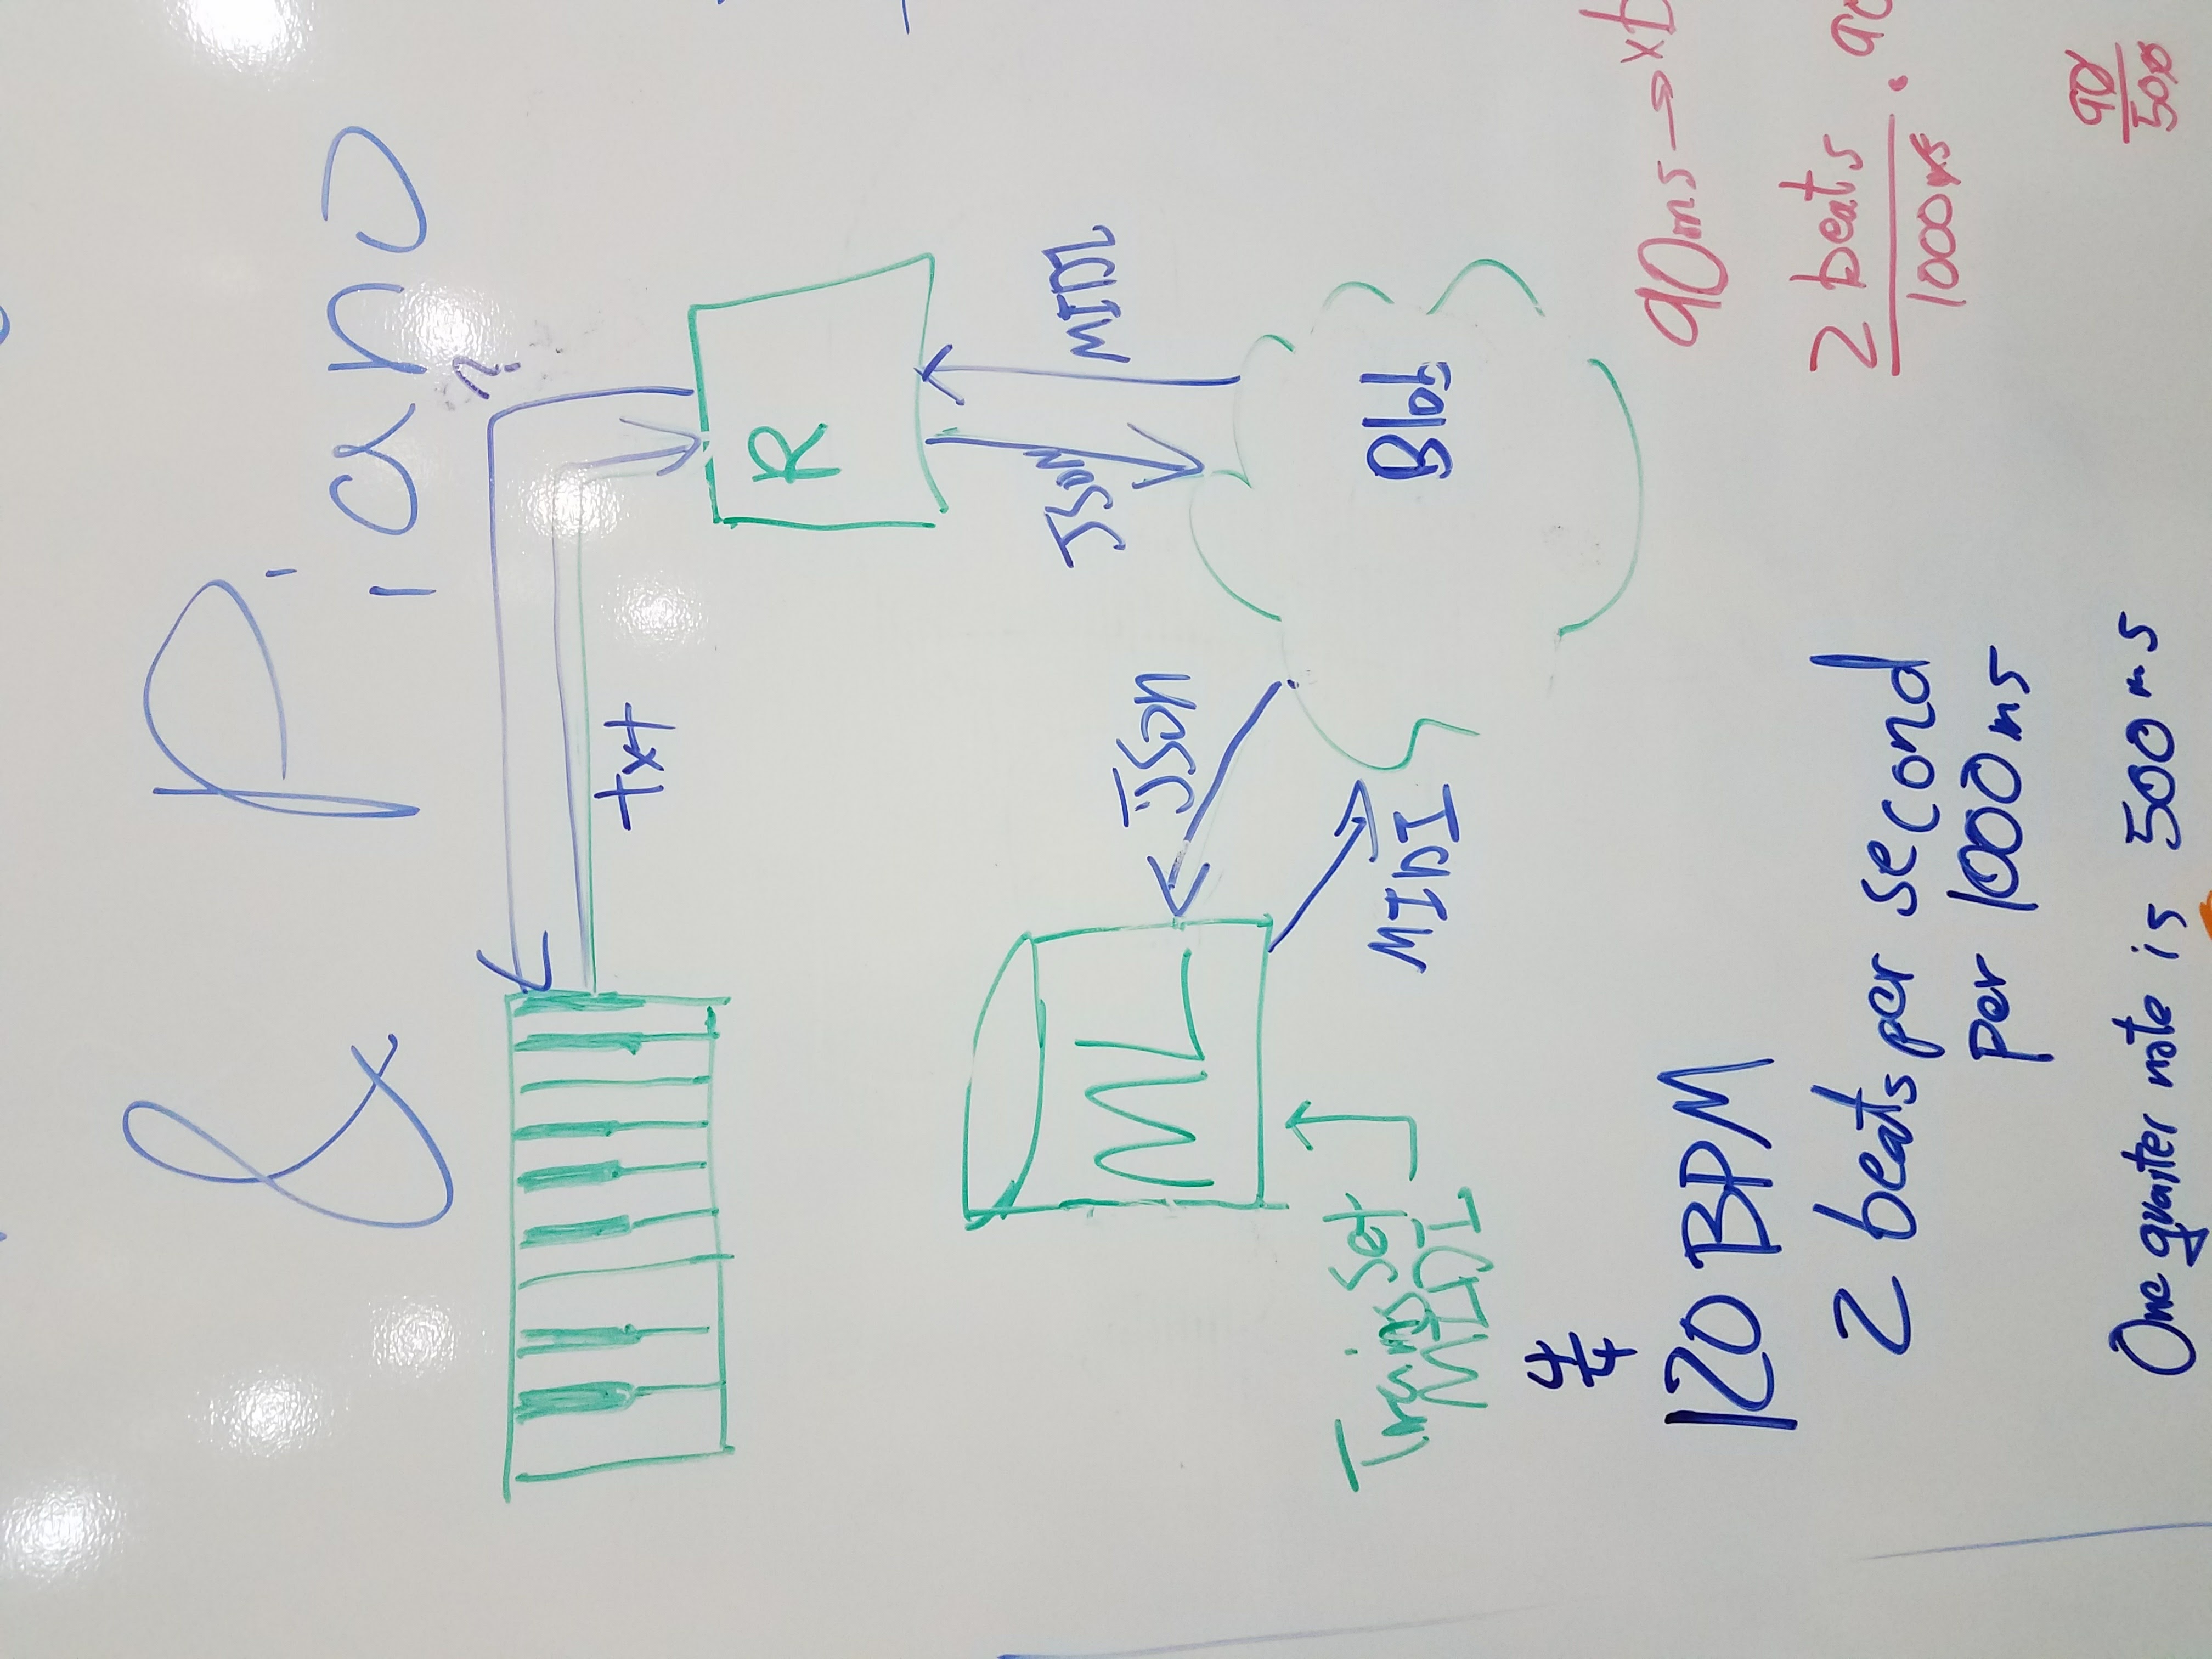 & Piano
?
txt
R
Json
MIDI
ML
Json
MIDI
Blob
Trains Set
MIDI
4
4
120 BPM
2 beats per second
per 1000ms
One quarter note is 500ms
90ms → xb
2 beats
1000ms
. 90
90
500